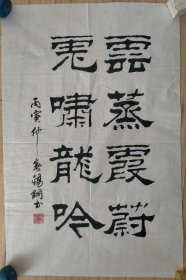 雲蒸霞蔚
虎嘯龍吟
丙寅仲錫書